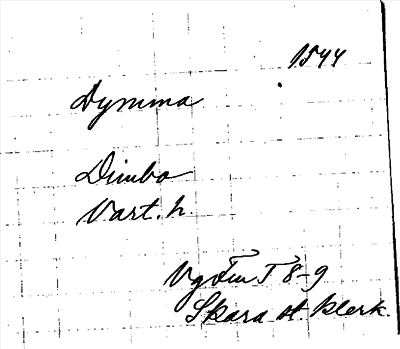 1544
Dymma
Dimbo
Vart. h.
Vg Fm T 8-9
Skara st. klerk.